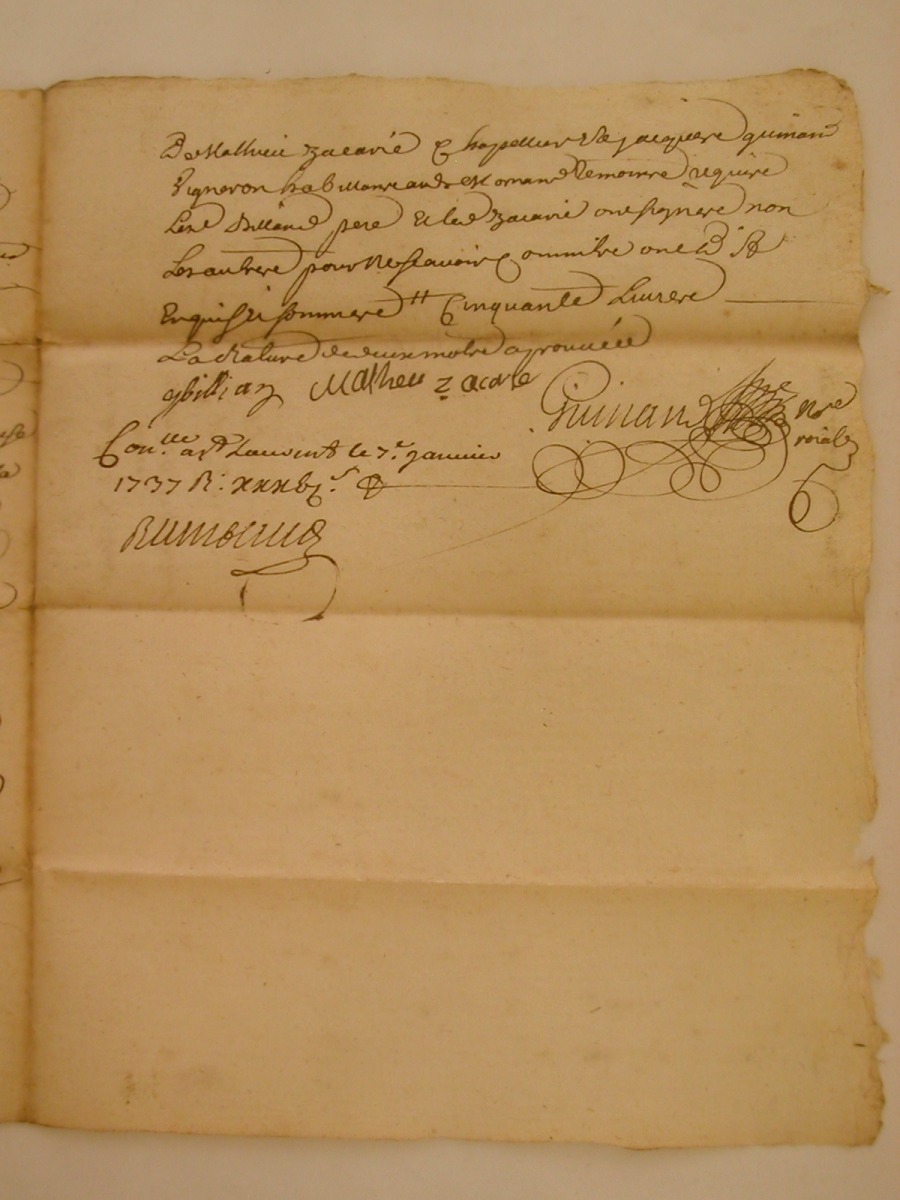 De Mathieu Zacarie chapellier & de jacques guinand
Vigneron habitants aud. Mornand temoins requis
Les d. billiand pere & led. Zacarie ont signes non
Les autres pour ne scavoir comm'ils ont dit
Enquis & sommes tt Cinquante Livres
La Rature de deux mots aprouvée
gbillian Matheu zacarie
Guinand no.re roial
Con.lle a S.t Laurent le 7.e janvier
1737 R: xxx s